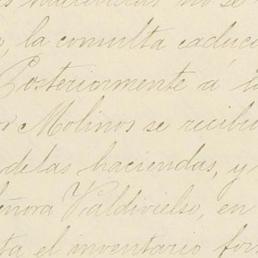 no se
, la consulta caduco
Posteriormente á l
r Molinos se recibi
de las haciendas, y
eñora Valdivielso, en
ta el inventario for